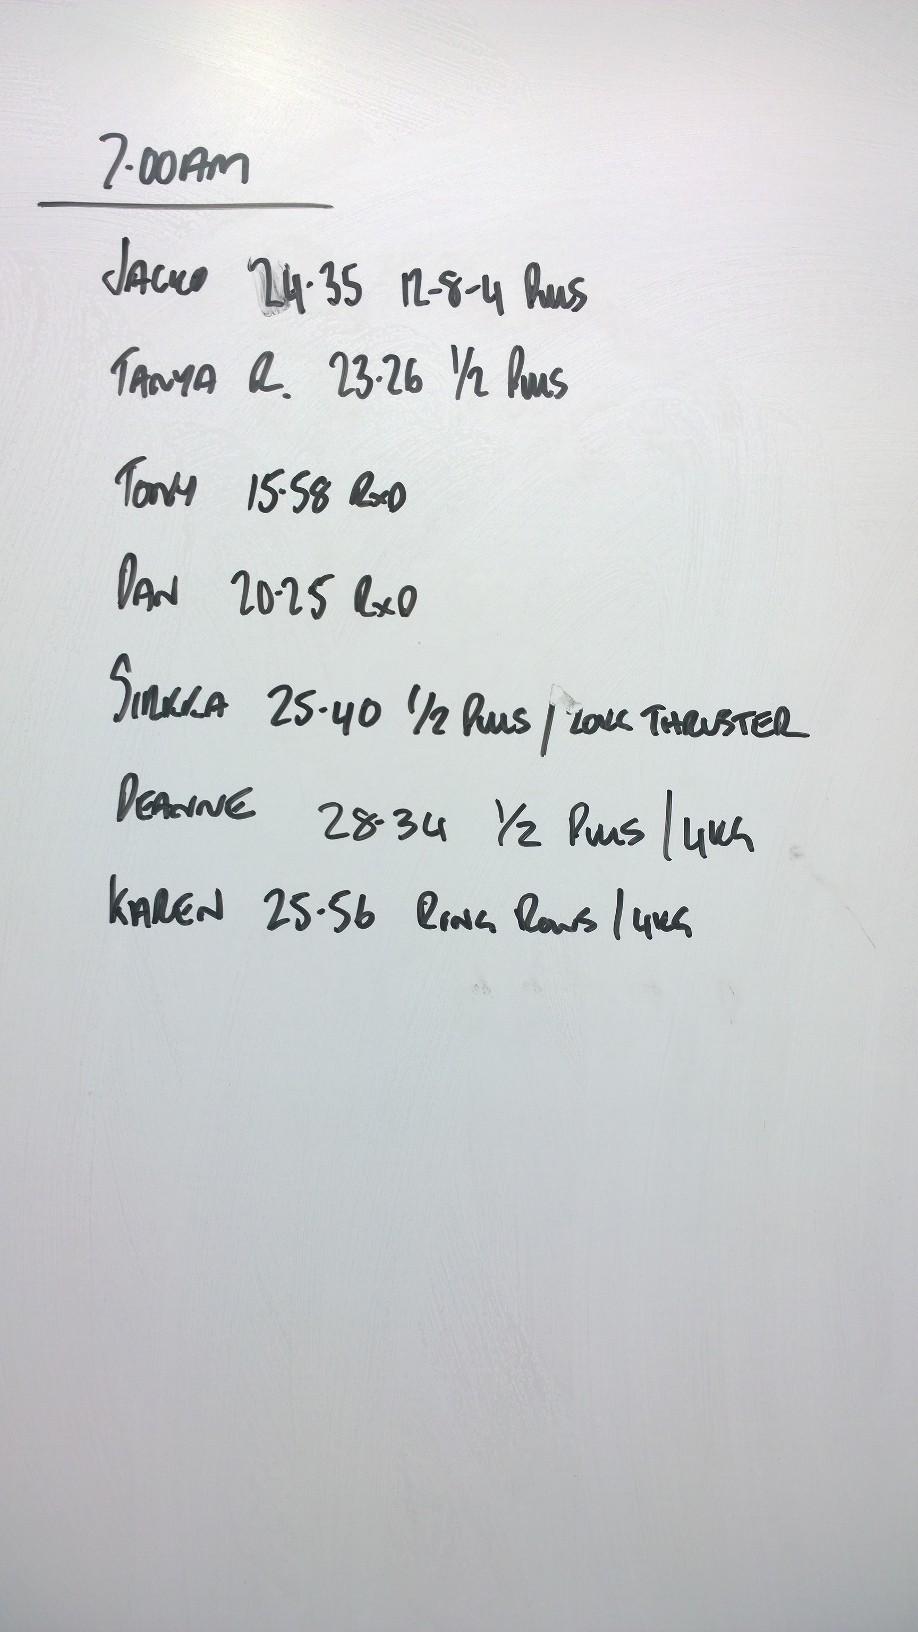 7.00AM
JACKO 24.35 12-8-4 PULLS
TANYA R. 23.26 1/2 PULLS
TONY 15.58 RXD
DAN 20.25 RXD
SIRKKA 25.40 1/2 PULLS / 20KG THRUSTER
DEANNE 28.34 1/2 PULLS / 4KG
KAREN 25.56 RING ROWS / 4KG